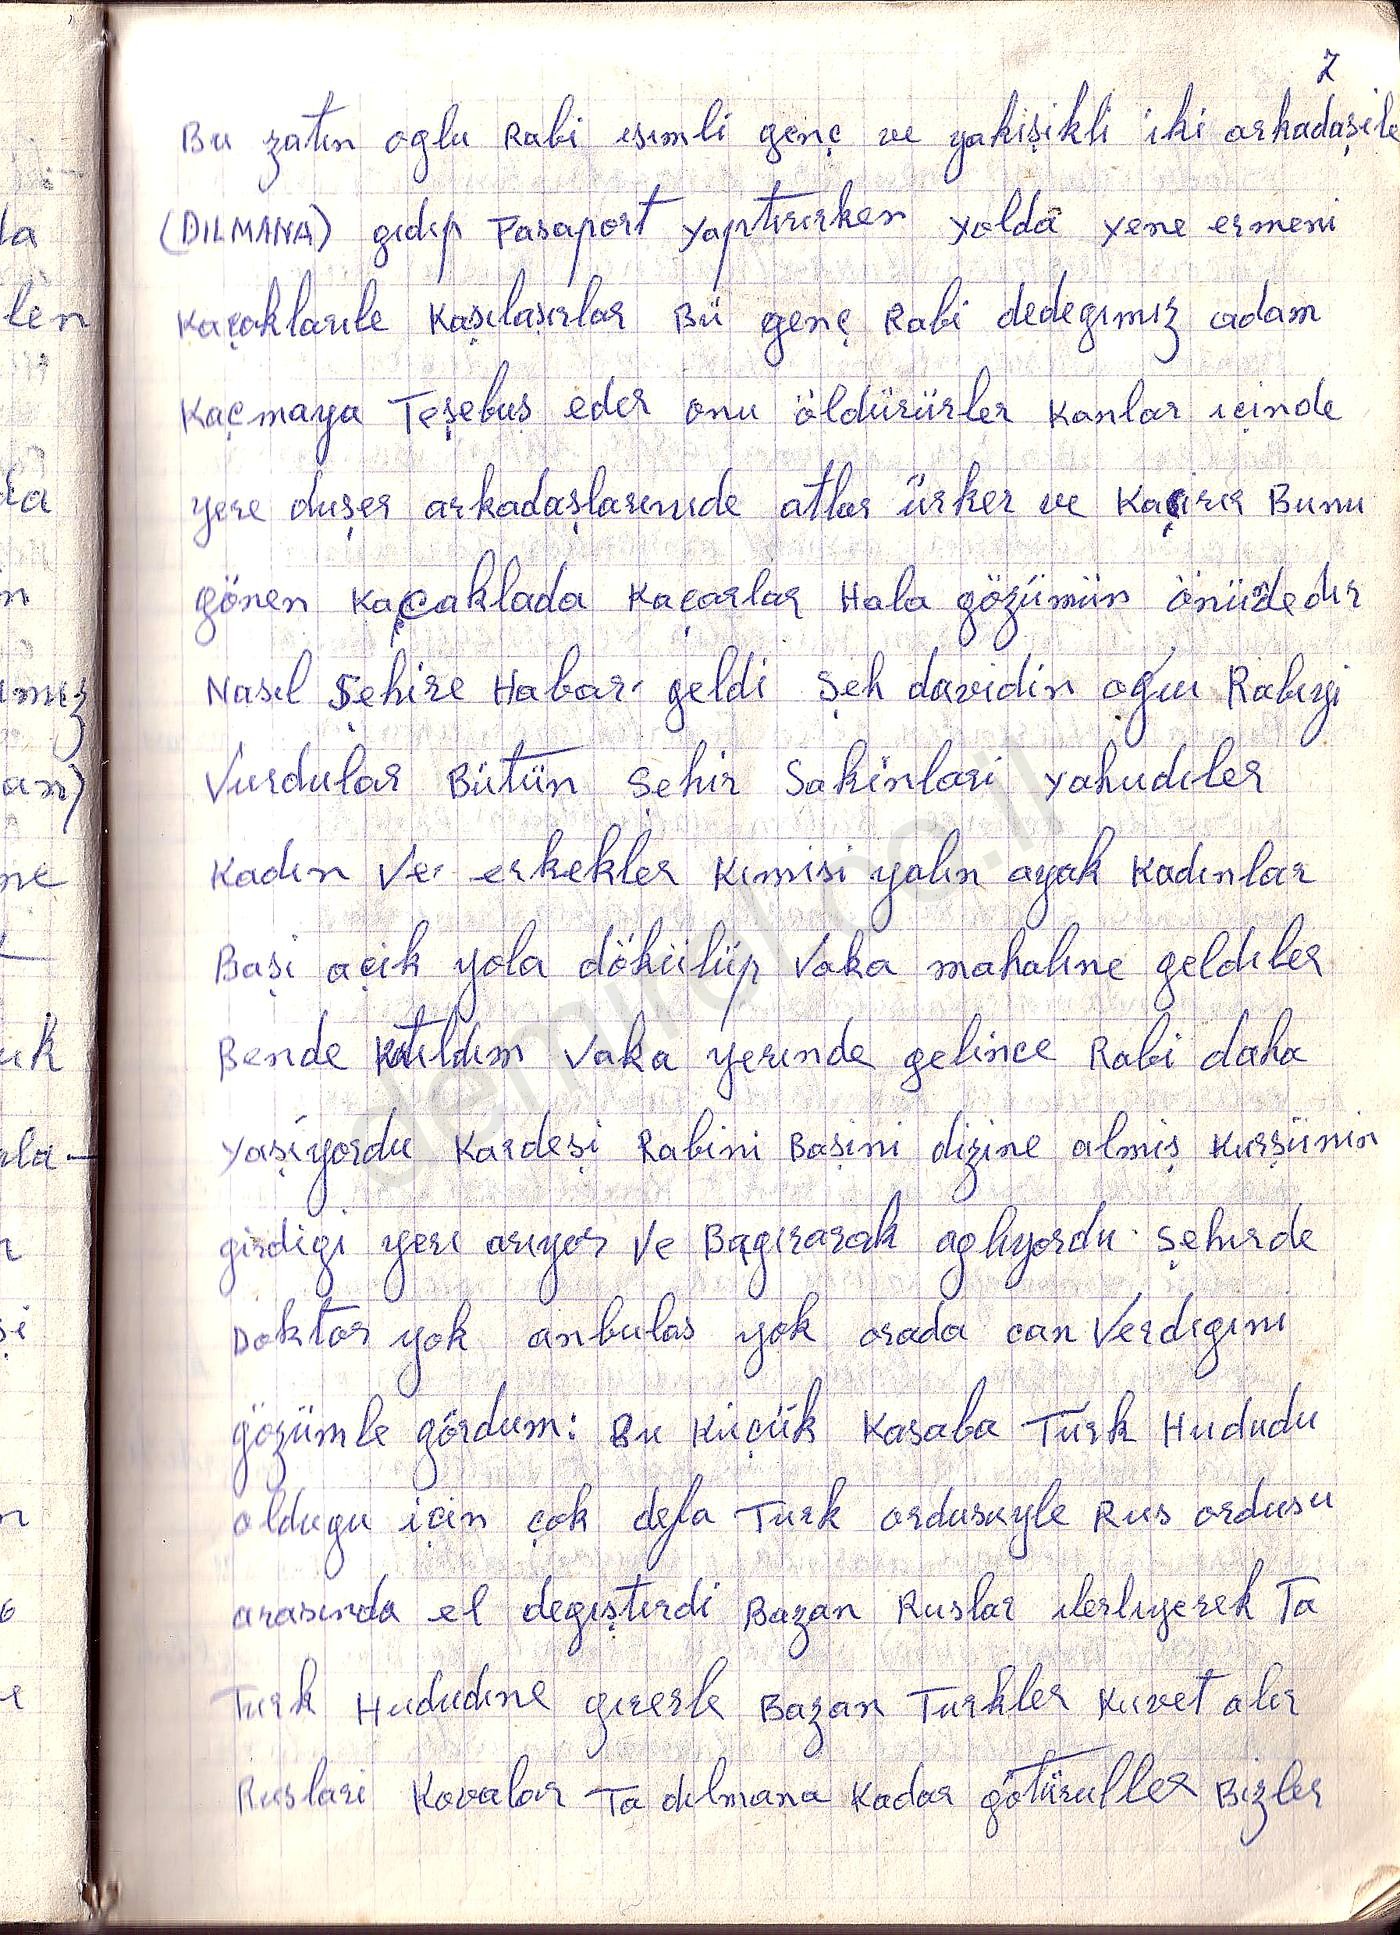 2
Bu zatın oglu Rabi ısımli genç ve yakişikli iki arkadaşile
(DILMANA) gıdıp Pasaport yaptırırken yolda yene ermeni
Kaçaklarıle Kaşılasırlar Bü genç Rabi dedegımız adam
Kaçmaya Teşebuş eder onu öldürürler Kanlar ıçinde
yere duşer arkadaşlarınıde atlar ürker ve Kaçirır Bunu
gönen Kaçaklada Kaçarlar Hala gözümün önüzdedır
Nasıl Şehire Habarı geldi Şeh davidin oğlu Rabıyi
Vurdular Bütün Şehir Sakinlari yahudıler
Kadın Ve erkekler Kımisi yalın ayak Kadınlar
Başi açik yola dökülüp Vaka mahalıne geldıler
Bende Katıldım Vaka yerınde gelince Rabi daha
yaşiyordu Kardeşi Rabini Başini dizine almiş Kurşünin
girdigi yerı arıyor Ve Bagırarak aglıyordu. Şehırde
Doktor yok anbulas yok orada can Verdıgıni
gözümle gördum: Bu Küçük Kasaba Turk Hududu
oldugu için çok defa Turk ordusuyle Rus ordusu
arasında el degıştırdi Bazan Ruslar ılerlıyerek Ta
Turk Hududıne gırerle Bazan Turkler Kuvet alır
Ruslari Kovalar Ta dılmana Kadar götürüller Bızler
la
len
da
n
ımız
an)
ne
uk
ala-
şi
n
demirel.co.il